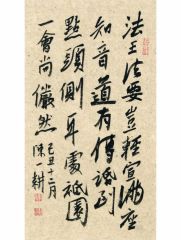 法王法要豈輕宣滿座
知音道有傳話到
點頭側耳處祇園
一會尚儼然
己丑十二月
陳一耕